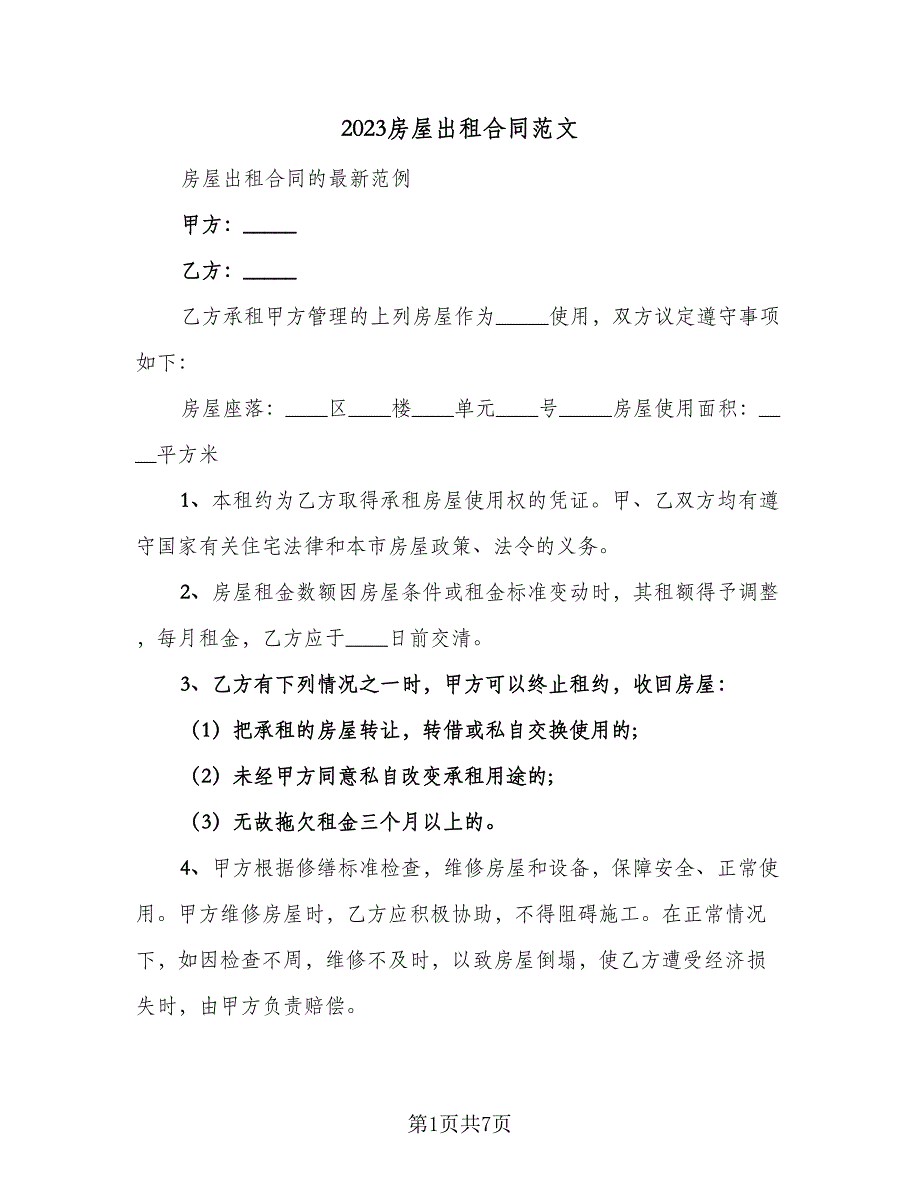 2023房屋出租合同范文
房屋出租合同的最新范例
甲方：_____
乙方：_____
乙方承租甲方管理的上列房屋作为_____使用，双方议定遵守事项
如下：
房屋座落：____区____楼____单元____号_____房屋使用面积：__
__平方米
1、本租约为乙方取得承租房屋使用权的凭证。甲、乙双方均有遵
守国家有关住宅法律和本市房屋政策、法令的义务。
2、房屋租金数额因房屋条件或租金标准变动时，其租额得予调整
，每月租金，乙方应于____日前交清。
3、乙方有下列情况之一时，甲方可以终止租约，收回房屋：
（1）把承租的房屋转让，转借或私自交换使用的；
（2）未经甲方同意私自改变承租用途的；
（3）无故拖欠租金三个月以上的。
4、甲方根据修缮标准检查，维修房屋和设备，保障安全、正常使
用。甲方维修房屋时，乙方应积极协助，不得阻碍施工。在正常情况
下，如因检查不周，维修不及时，以致房屋倒塌，使乙方遭受经济损
失时，由甲方负责赔偿。
第1页共7页